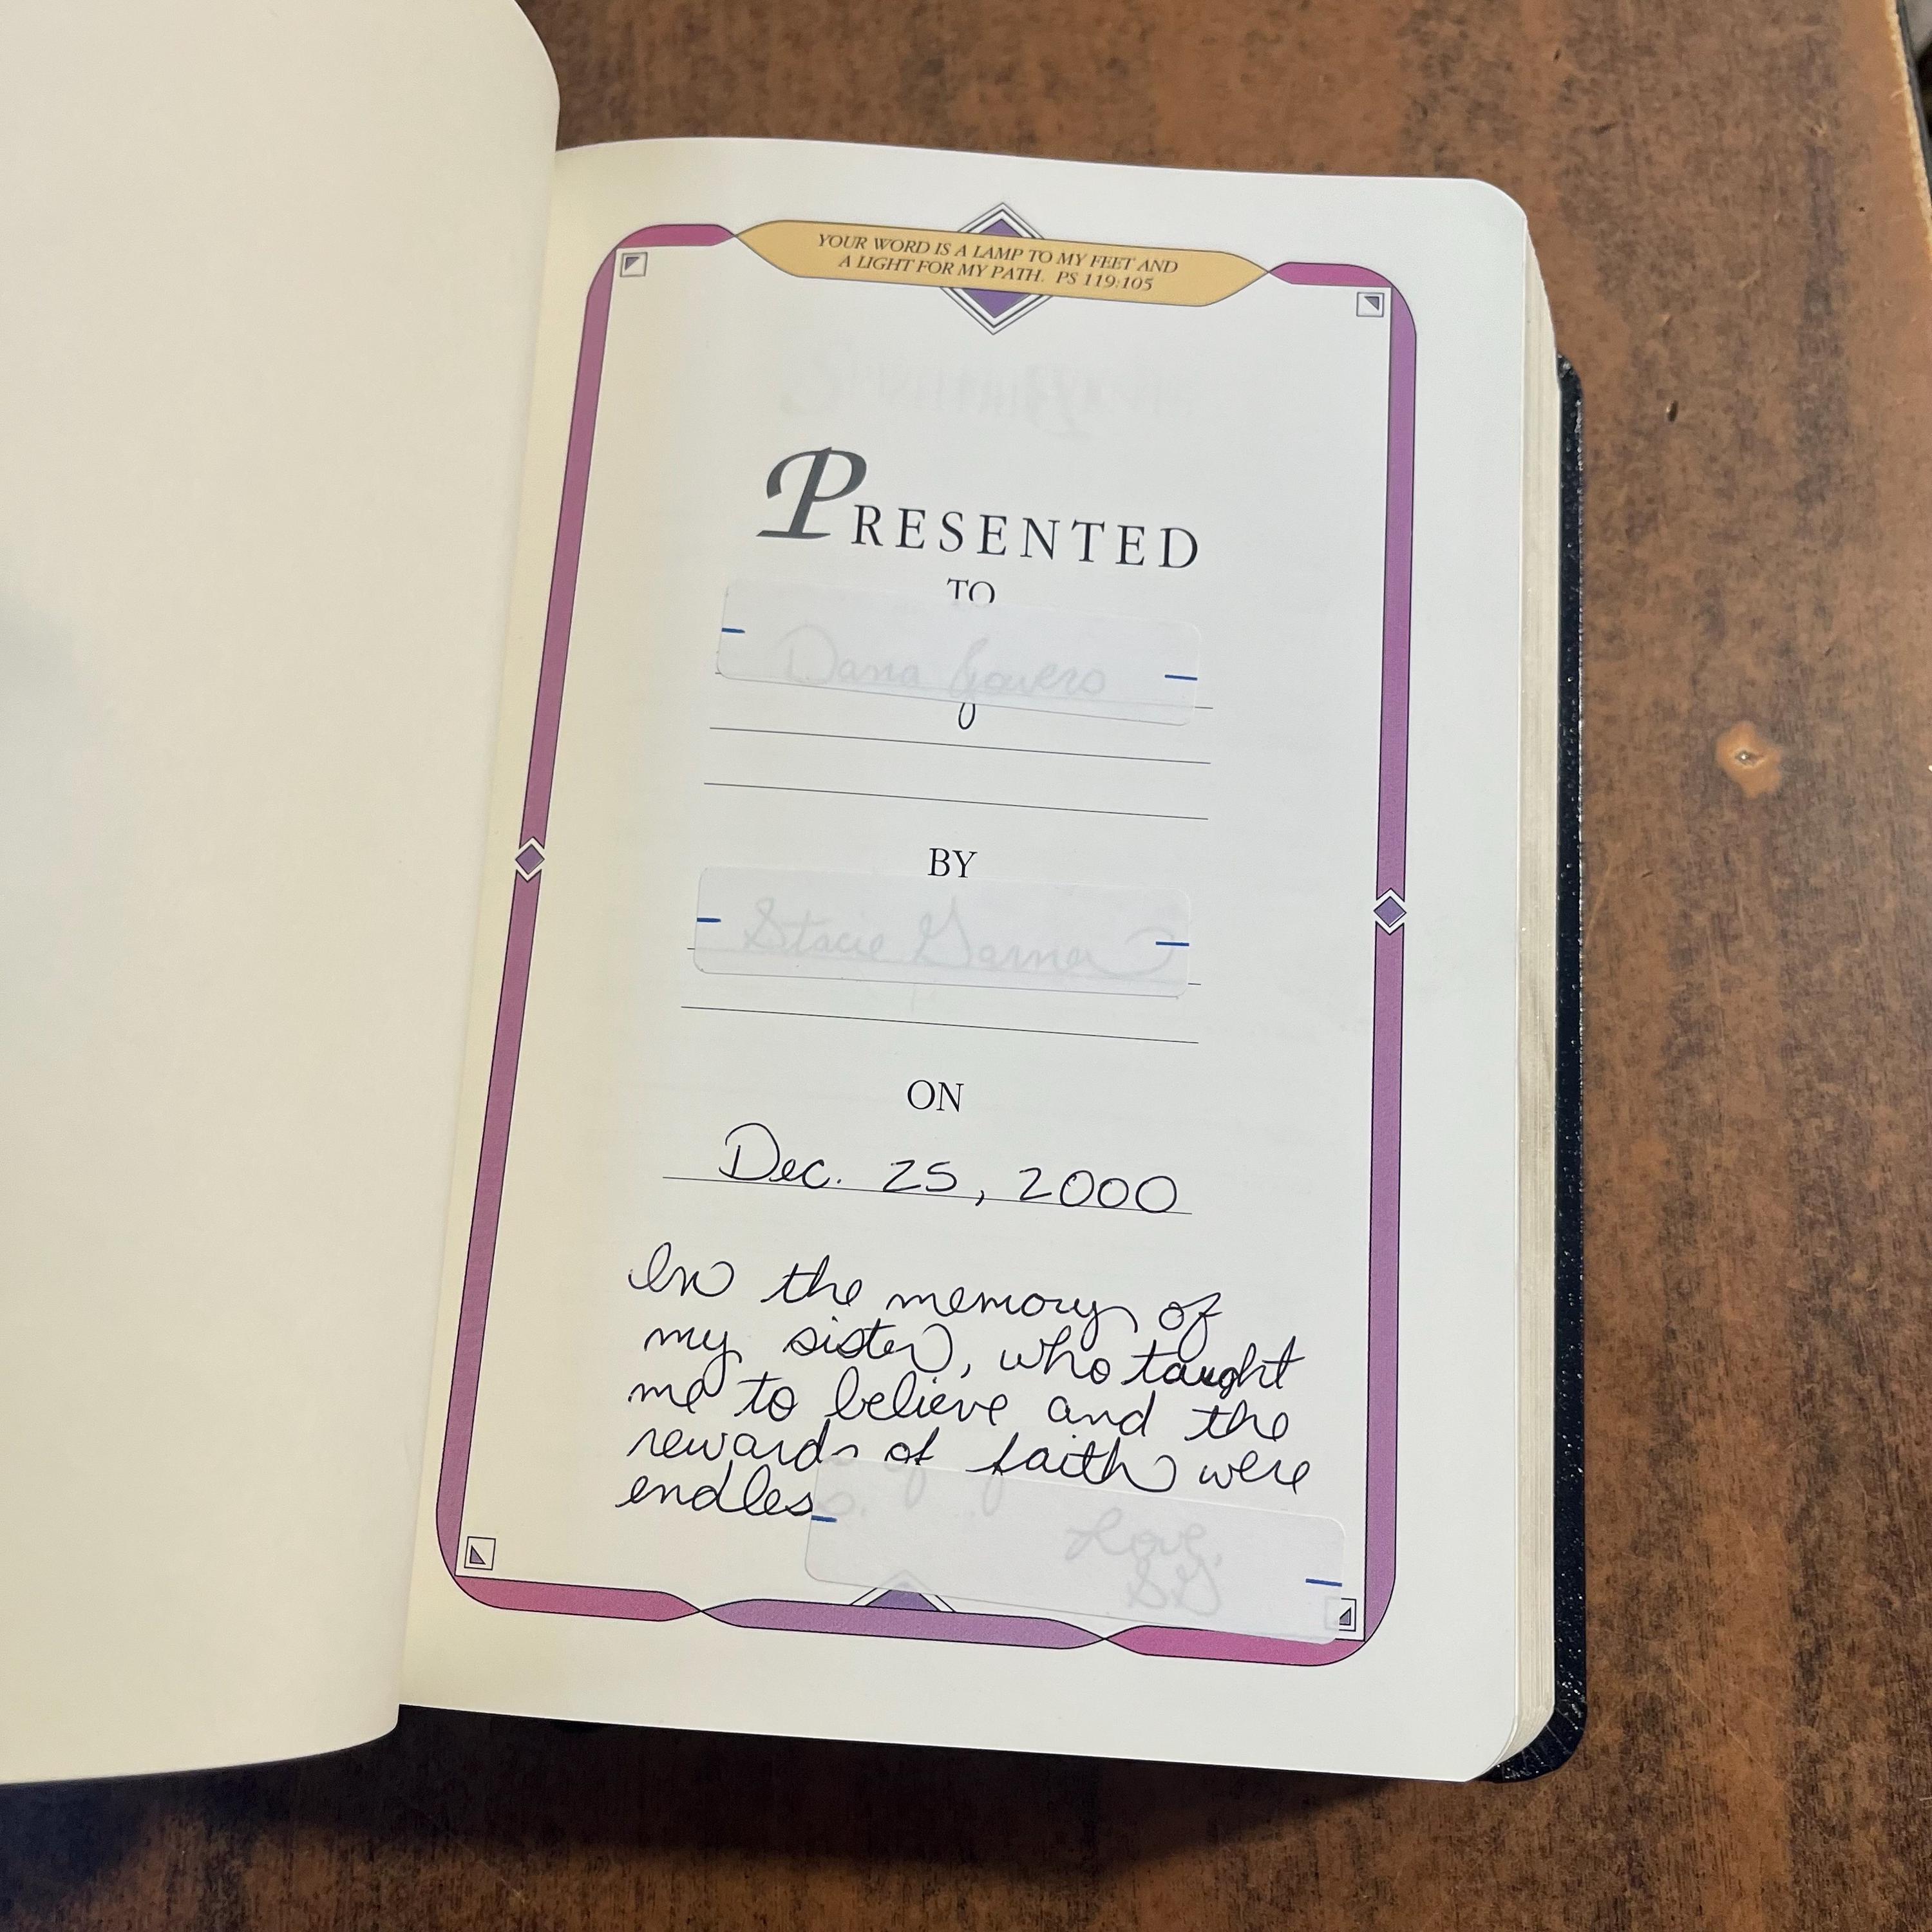 YOUR WORD IS A LAMP TO MY FEET AND
A LIGHT FOR MY PATH. PS 119:105
PRESENTED
TO
Dana
BY
Stacie
ON
Dec. 25, 2000
In the memory of
my sister, who taught
me to believe and the
rewards of faith were
endless.
Love,
SG